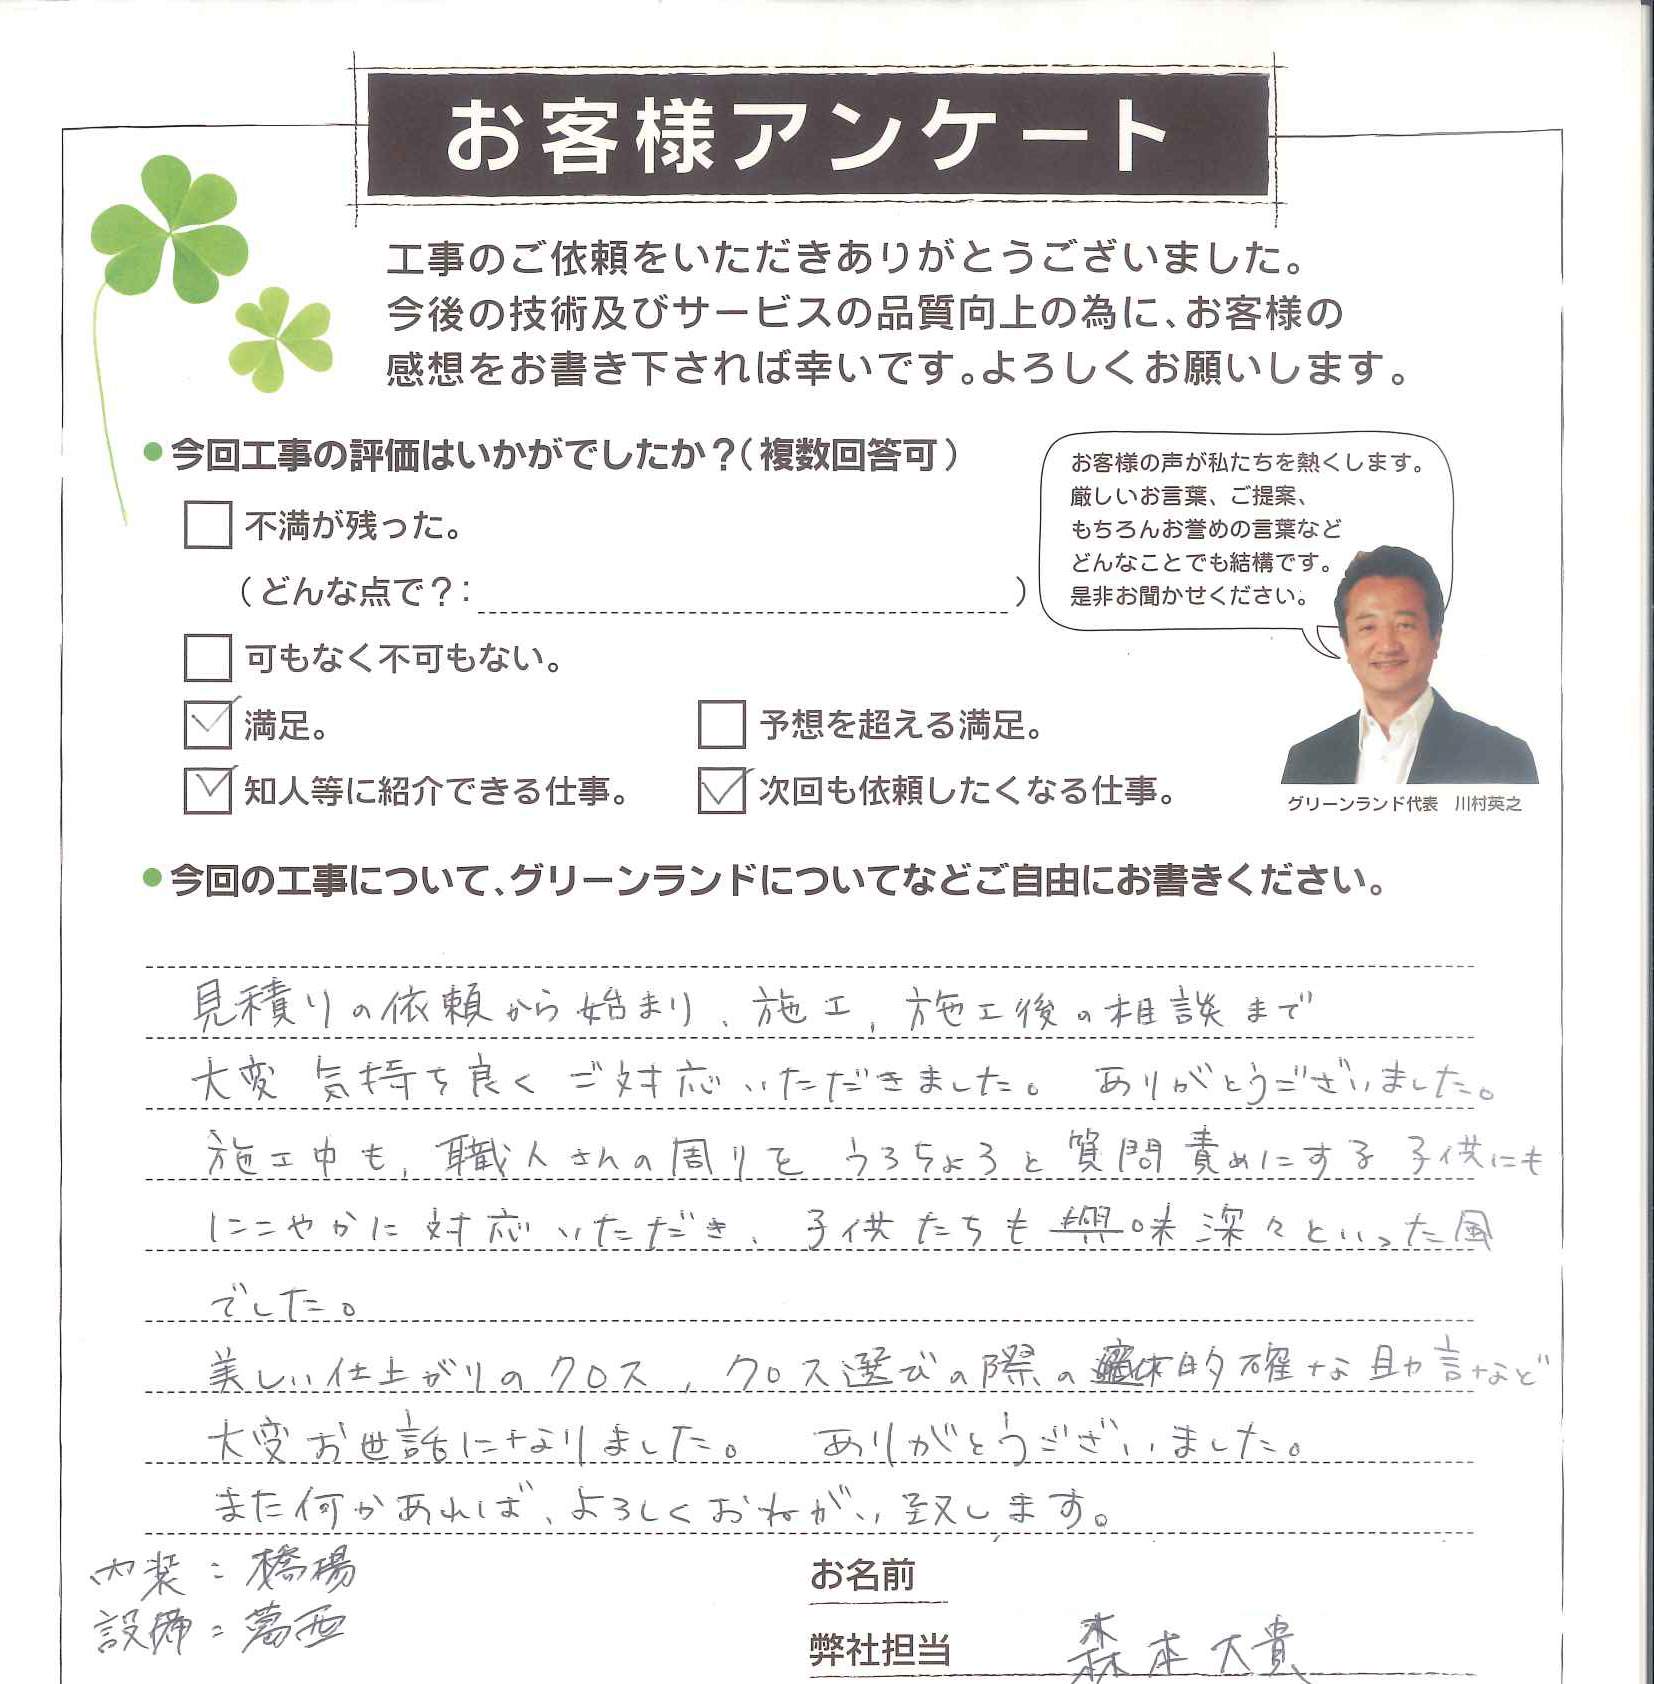 お客様アンケート
工事のご依頼をいただきありがとうございました。
今後の技術及びサービスの品質向上の為に、お客様の
感想をお書き下されば幸いです。よろしくお願いします。
●今回工事の評価はいかがでしたか?(複数回答可)
不満が残った。
(どんな点で?: )
可もなく不可もない。
満足。
予想を超える満足。
知人等に紹介できる仕事。
次回も依頼したくなる仕事。
お客様の声が私たちを熱くします。
厳しいお言葉、ご提案、
もちろんお誉めの言葉など
どんなことでも結構です。
是非お聞かせください。
グリーンランド代表 川村英之
●今回の工事について、グリーンランドについてなどご自由にお書きください。
見積りの依頼から始まり、施工、施工後の相談まで
大変気持ち良くご対応いただきました。 ありがとうございました。
施工中も、職人さんの周りをうろちょろと質問責めにする子供にも
にこやかに対応いただき、子供たちも興味深々といった風
でした。
美しい仕上がりのクロス、クロス選びの際の的確な助言など
大変お世話になりました。 ありがとうございました。
また何かあれば、よろしくおねがい致します。
内装:橋場
設備:葛西
お名前
弊社担当 森本大貴